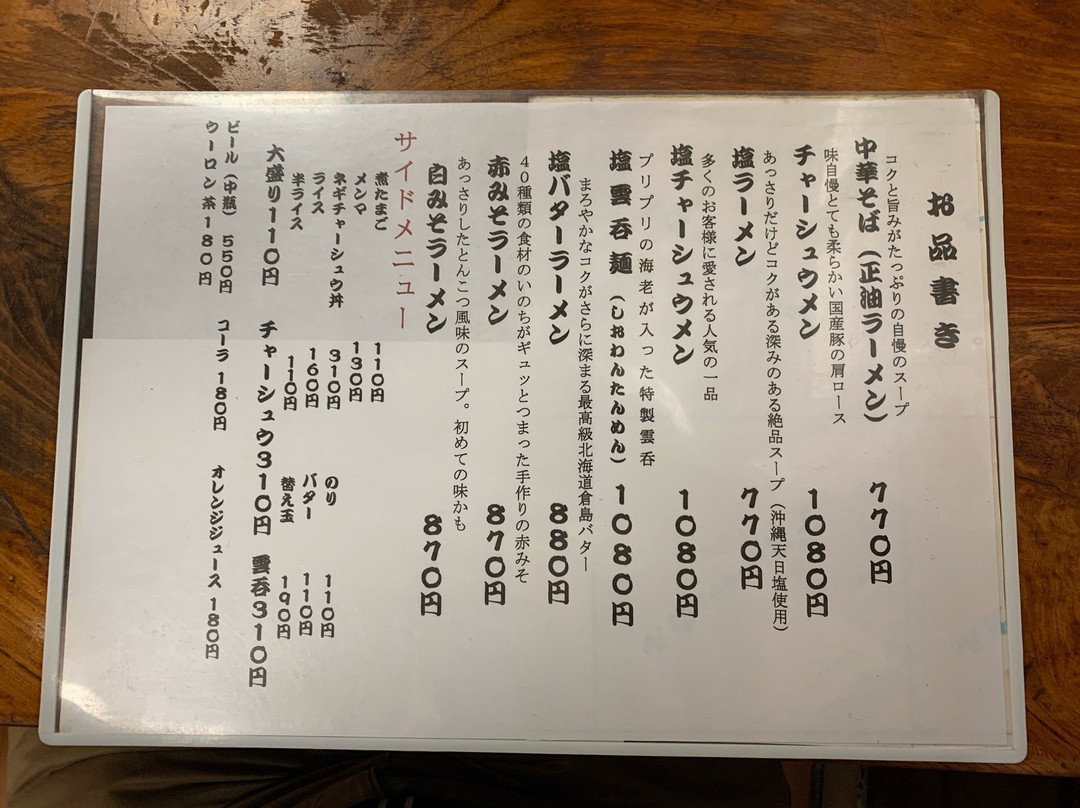 お品書き
コクと旨みがたっぷりの自慢のスープ
中華そば（正油ラーメン） 770円
味自慢とても柔らかい国産豚の肩ロース
チャーシュウメン 1080円
あっさりだけどコクがある深みのある絶品スープ（沖縄天日塩使用）
塩ラーメン 770円
多くのお客様に愛される人気の一品
塩チャーシュウメン 1080円
プリプリの海老が入った特製雲呑
塩雲呑麺（しおわんたんめん） 1080円
まろやかなコクがさらに深まる最高級北海道倉島バター
塩バターラーメン 880円
40種類の食材のいのちがギュッとつまった手作りの赤みそ
赤みそラーメン 870円
あっさりしたとんこつ風味のスープ。初めての味かも
白みそラーメン 870円
サイドメニュー
煮たまご 110円
メンマ 130円
ネギチャーシュウ丼 310円 のり 110円
ライス 160円 バター 110円
半ライス 110円 替え玉 190円
大盛り110円 チャーシュウ310円 雲呑310円
ビール（中瓶） 550円
ウーロン茶180円 コーラ 180円 オレンジジュース 180円